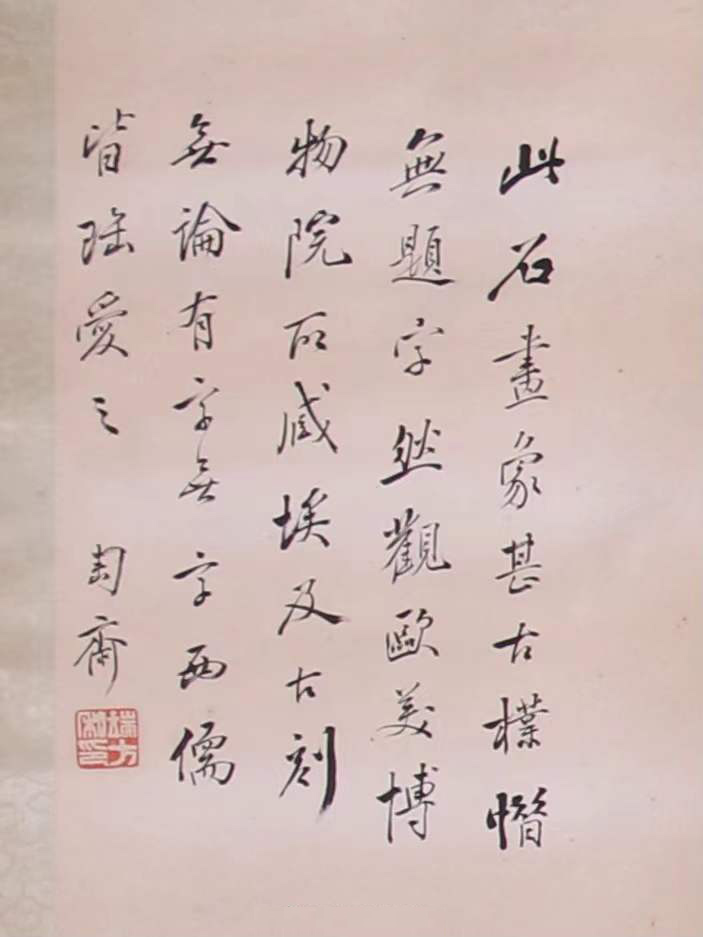 此石畫象甚古樸惜
無題字然觀歐美博
物院所藏埃及古刻
無論有字無字西儒
皆珤愛之 匋齋
端方私印